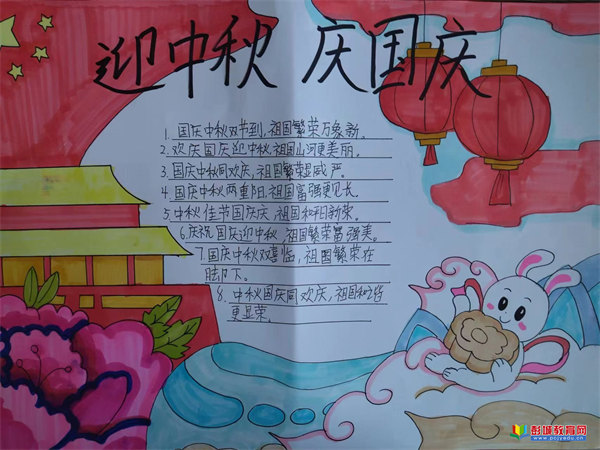 迎中秋 庆国庆
1. 国庆中秋双节到,祖国繁荣万象新。
2. 欢庆国庆迎中秋,祖国山河更美丽。
3. 国庆中秋同欢庆,祖国繁荣显威严。
4. 国庆中秋两重阳,祖国富强更见长。
5. 中秋佳节国庆庆,祖国和阳新荣。
6. 庆祝国庆迎中秋,祖国繁荣富强美。
7. 国庆中秋双喜临,祖国繁荣在
脚下。
8. 中秋国庆同欢庆,祖国和谐
更显荣。
彭城教育网
www.pcjyedu.cn